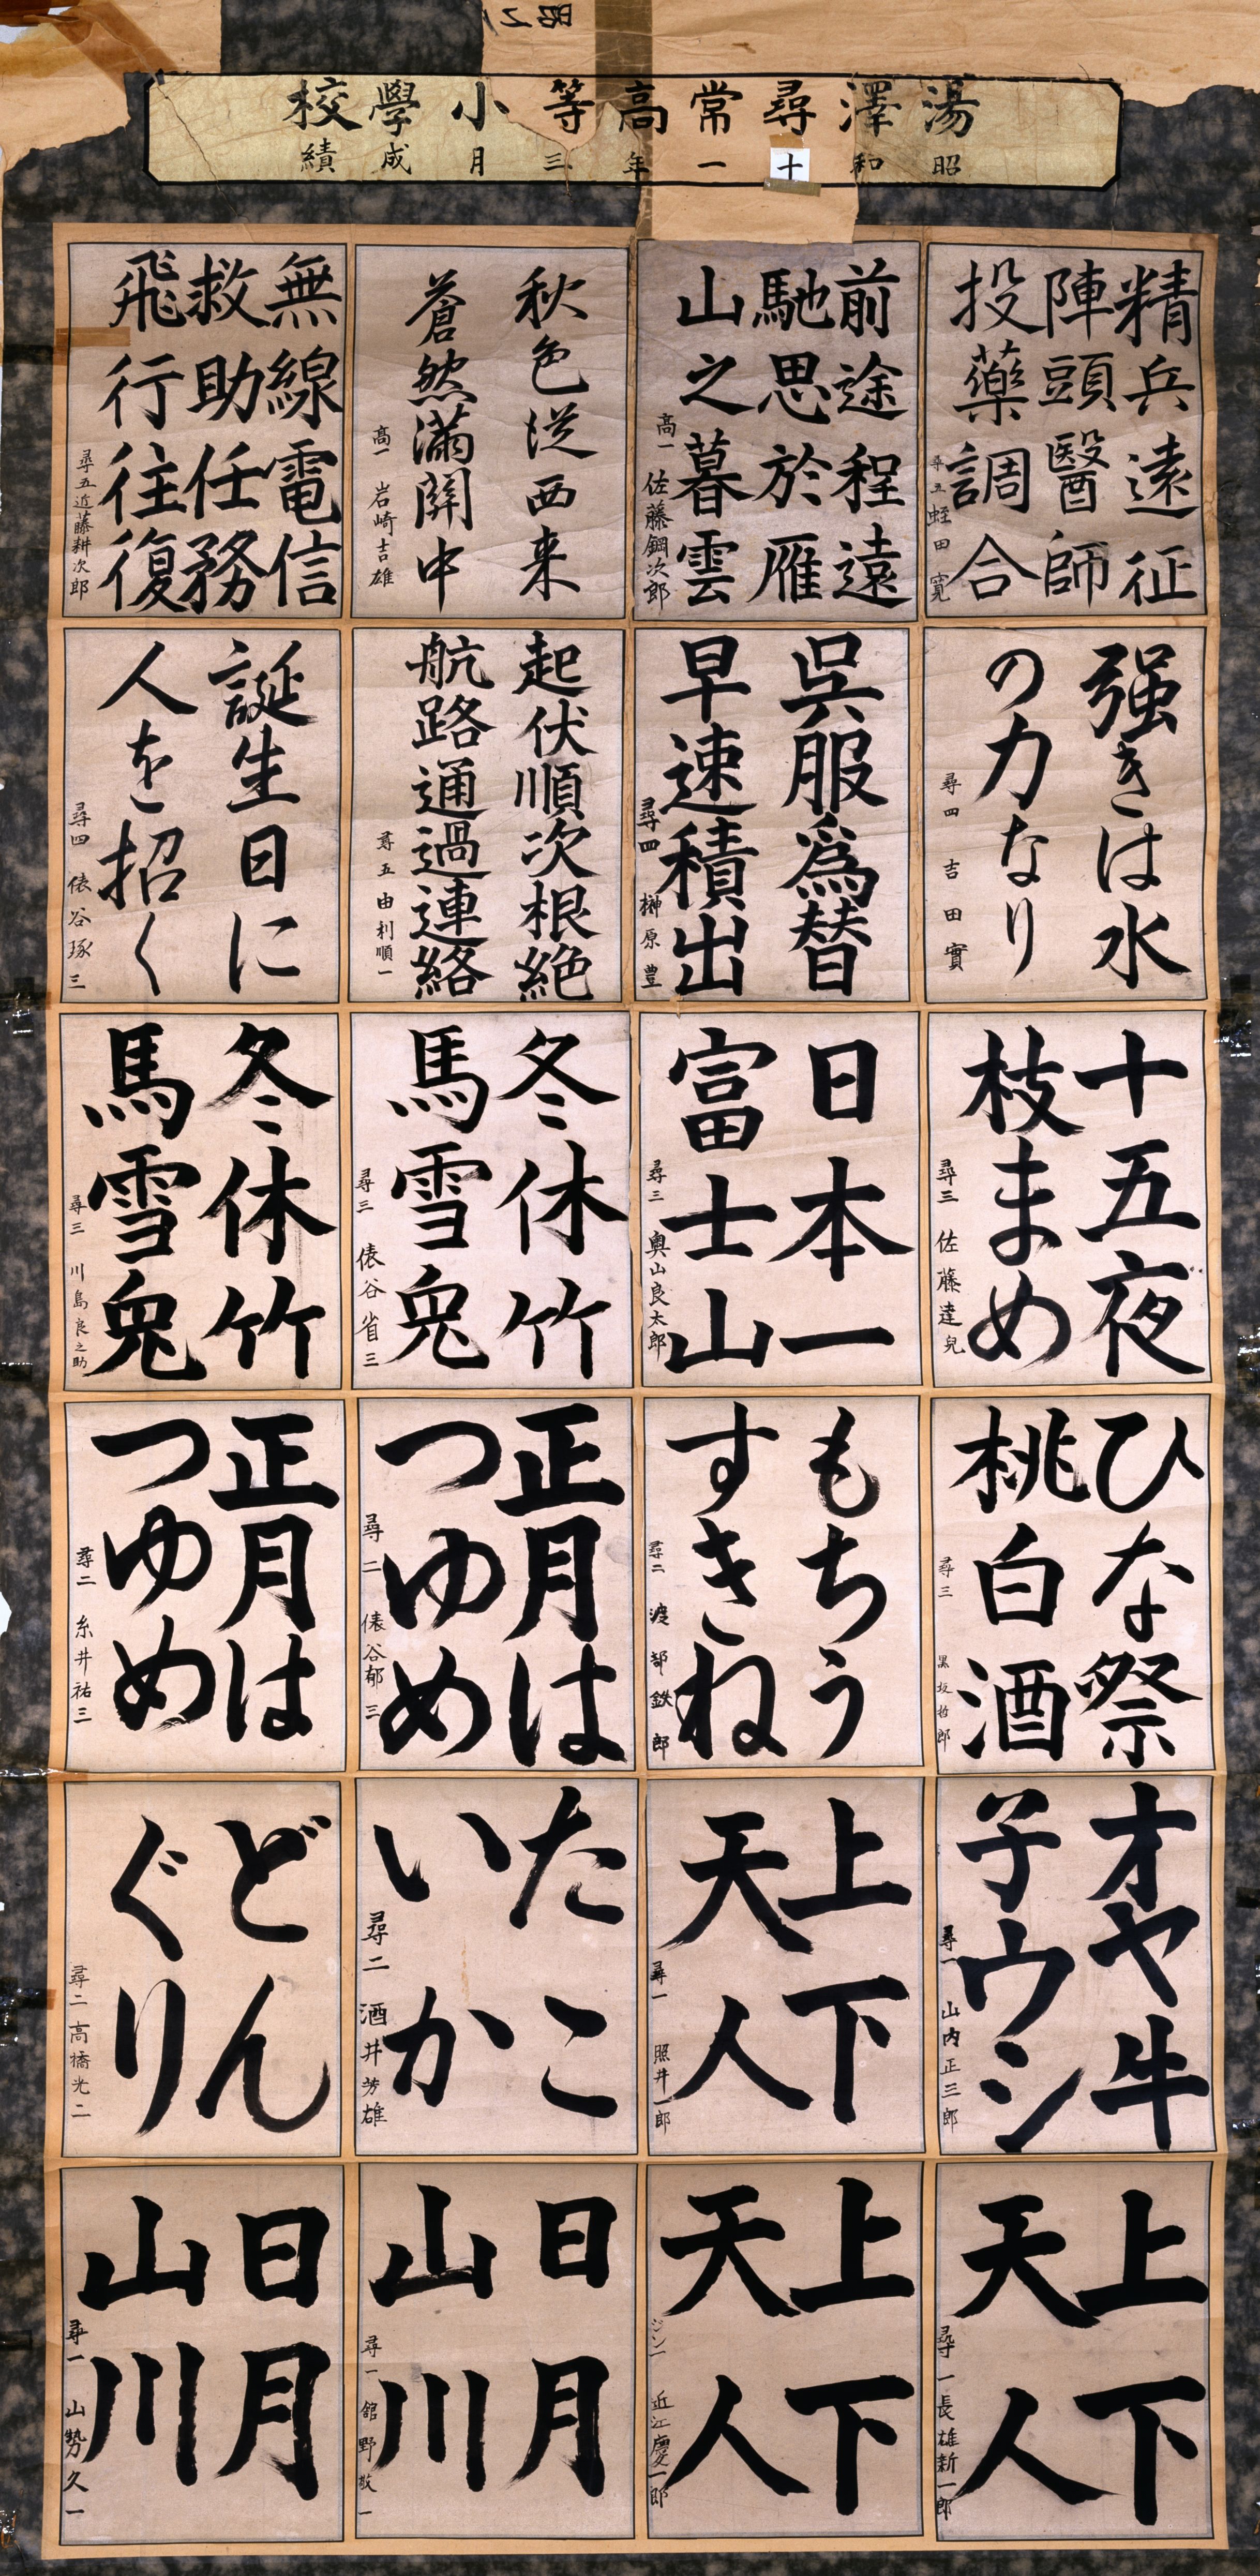 昭21
湯澤尋常高等小學校
昭和十一年三月成績
精兵遠征
陣頭醫師
投藥調合
尋五 蛭田寛
前途程遠
馳思於雁
山之暮雲
高一 佐藤鋼次郎
秋色従西来
蒼然満関中
高一 岩崎吉雄
無線電信
救助任務
飛行往復
尋五 近藤耕次郎
强きは水
の力なり
尋四 吉田實
呉服爲替
早速積出
尋四 榊原豊
起伏順次根絶
航路通過連絡
尋五 由利順一
誕生日に
人を招く
尋四 俵谷琢三
十五夜
枝まめ
尋三 佐藤達兒
日本一
富士山
尋三 奥山良太郎
冬休竹
馬雪兎
尋三 俵谷省三
冬休竹
馬雪兎
尋三 川島良之助
ひな祭
桃白酒
尋三 黒坂哲郎
もちう
すきね
尋二 渡部鉄郎
正月は
つゆめ
尋二 俵谷郁三
正月は
つゆめ
尋二 糸井祐三
オヤ牛
子ウシ
尋一 山内正三郎
上下
天人
尋一 照井一郎
たこ
いか
尋二 酒井芳雄
どん
ぐり
尋二 高橋光二
上下
天人
尋一 長雄新一郎
上下
天人
ジン一 近江慶一郎
日月
山川
尋一 舘野敬一
日月
山川
尋一 山勢久一